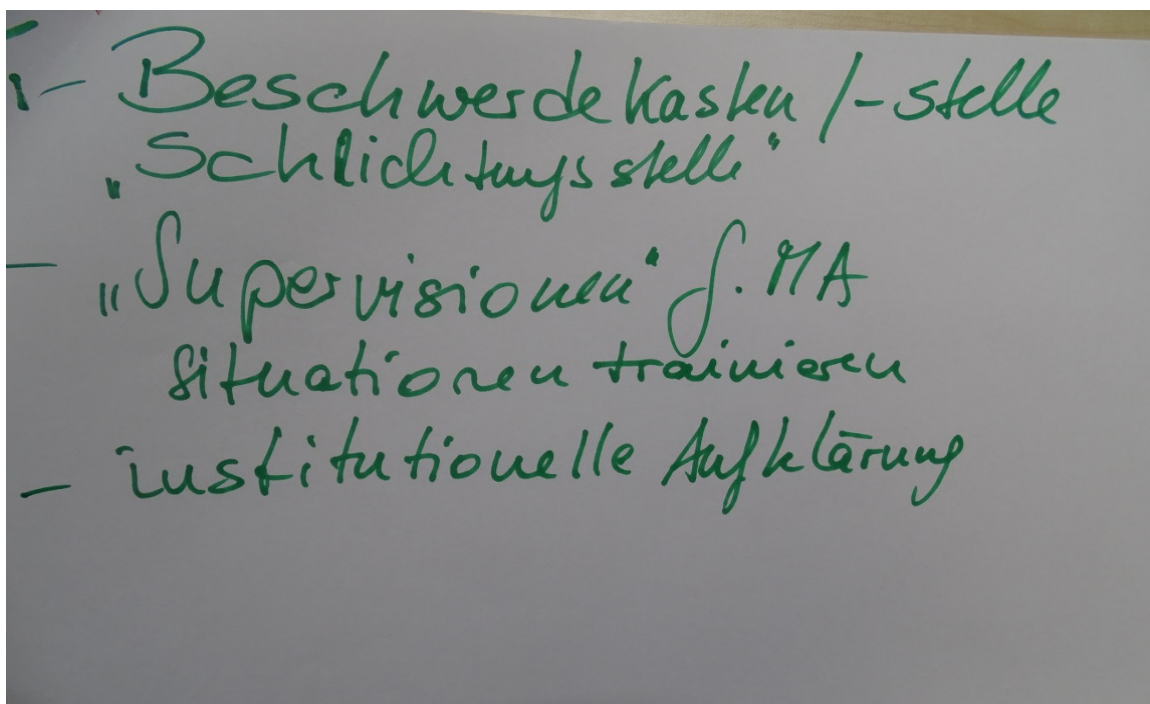 - Beschwerdekasten /-stelle
„Schlichtungsstelle“
- „Supervisionen“ f. MA
Situationen trainieren
- institutionelle Aufklärung